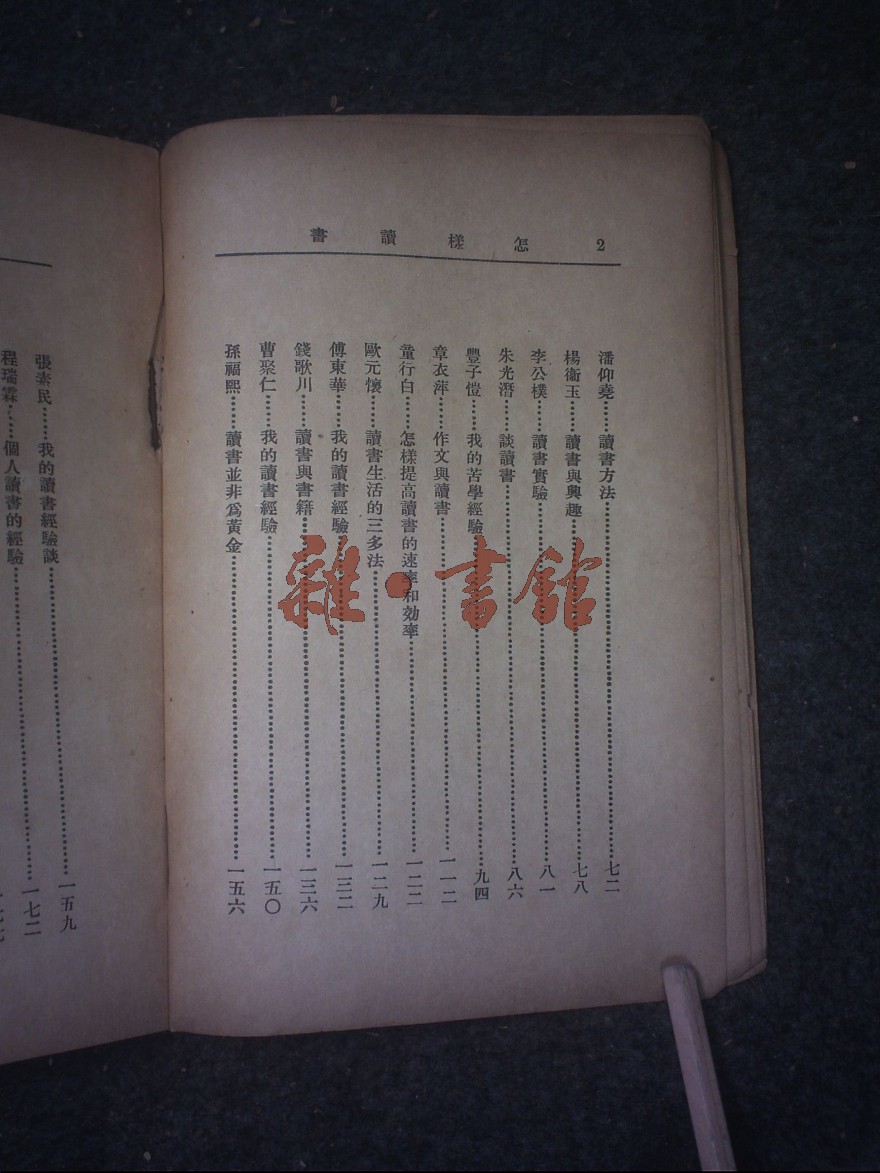 2　怎樣讀書
潘仰堯……讀書方法……七二
楊衞玉……讀書與興趣……七八
李公樸……讀書實驗……八一
朱光潛……談讀書……八六
豐子愷……我的苦學經驗……九四
章衣萍……作文與讀書……一一二
童行白……怎樣提高讀書的速率和効率……一二二
歐元懷……讀書生活的三多法……一二九
傅東華……我的讀書經驗……一三二
錢歌川……讀書與書籍……一三六
曹聚仁……我的讀書經驗……一五〇
孫福熙……讀書並非爲黃金……一五六
張素民……我的讀書經驗談……一五九
程瑞霖……個人讀書的經驗……一七二
雜·書館